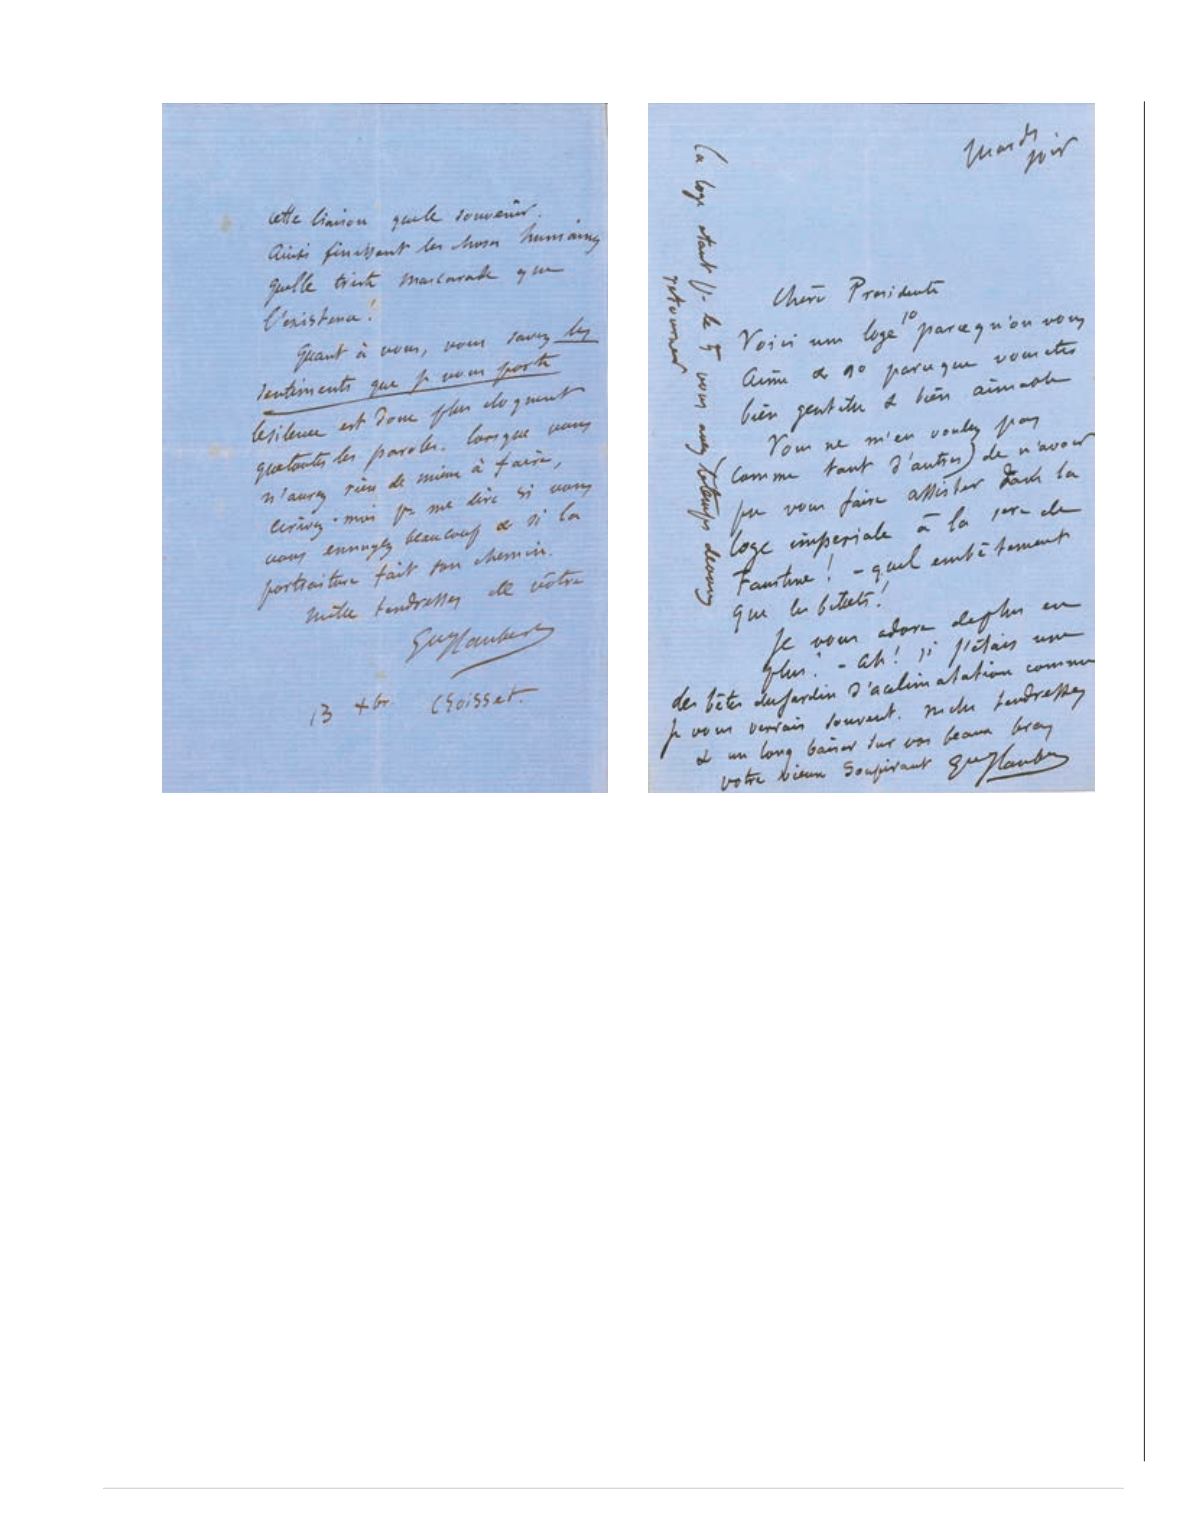 cette liaison que le souvenir.
Ainsi finissent les choses humaines
quelle triste mascarade que
l'existence!
Quant à vous, vous savez les
sentiments que je vous porte
le silence est donc plus éloquent
que toutes les paroles. Lorsque vous
n'aurez rien de mieux à faire,
écrivez-moi pr me dire si vous
vous ennuyez beaucoup & si la
portraiture fait son chemin.
Mille tendresses de vôtre
Gve Flaubert
13 Croisset.
Mardi
soir
Chère Presidente
Voici une loge 1o parcequ'on vous
Aime & 2o parceque vous êtes
bien gentille & bien aimable
Vous ne m'en voulez pas
(comme tant d'autres) de n'avoir
pu vous faire assister dans la
loge impériale à la 1ere de
Faustine! - quel embêtement
que les billets!
Je vous adore de plus en
plus! - Ah! si j'étais une
des bêtes du jardin d'aclimatation comme
je vous verrais souvent. Mille tendresses
& un long baiser sur vos beaux bras
votre vieux Soupirant Gve Flaubert
la loge étant pr le 5 vous avez le temps de vous
retourner